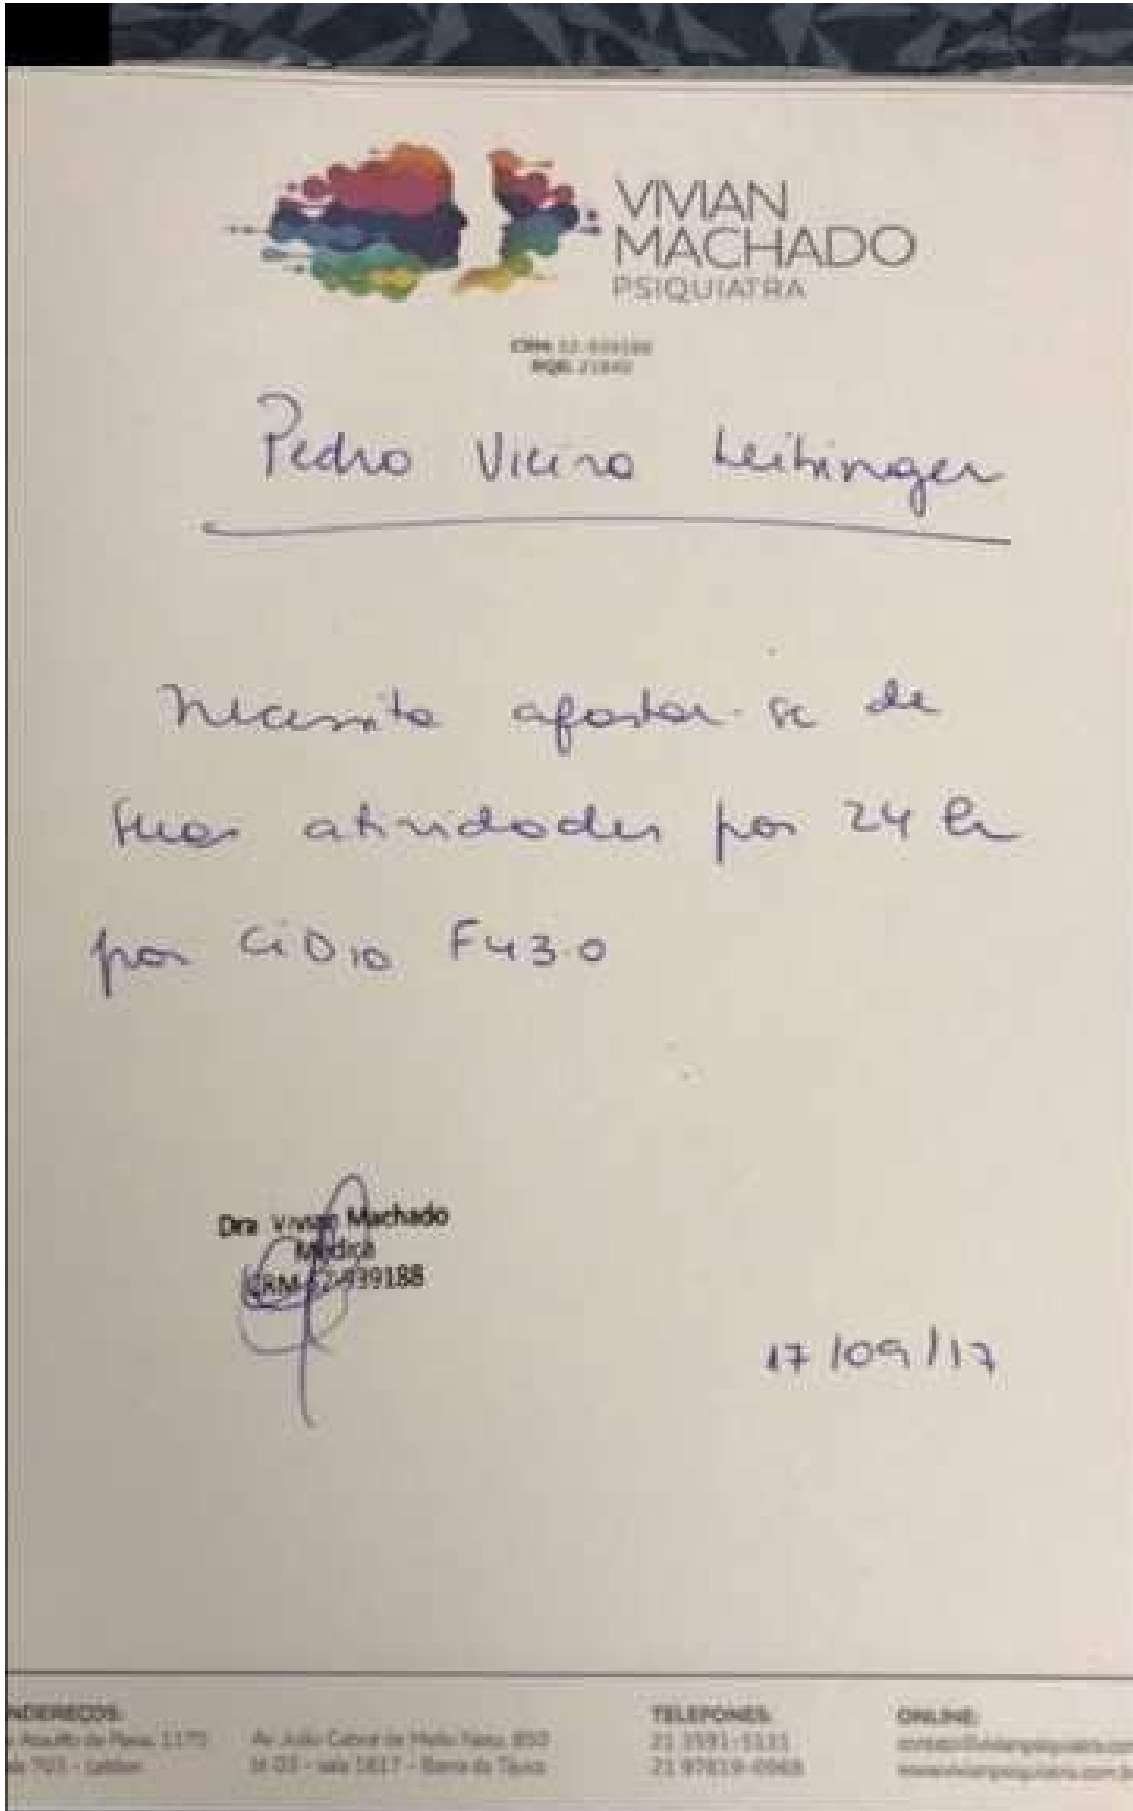 VIVIAN
MACHADO
PSIQUIATRA
CRM: 52-939188
RQE:
Pedro Vieira Leitinger
Necessita afastar-se de
suas atividades por 24 h
por CiD10 F43.0
Dra Vivian Machado
Médica
CRM-52-939188
17/09/17
ENDEREÇOS:
1175
sala 703 - Leblon
Av João Cabral de Mello Neto, 850
bl 03 - sala 1617 - Barra da Tijuca
TELEFONES:
21 3591-5131
21 97819-0968
ONLINE: